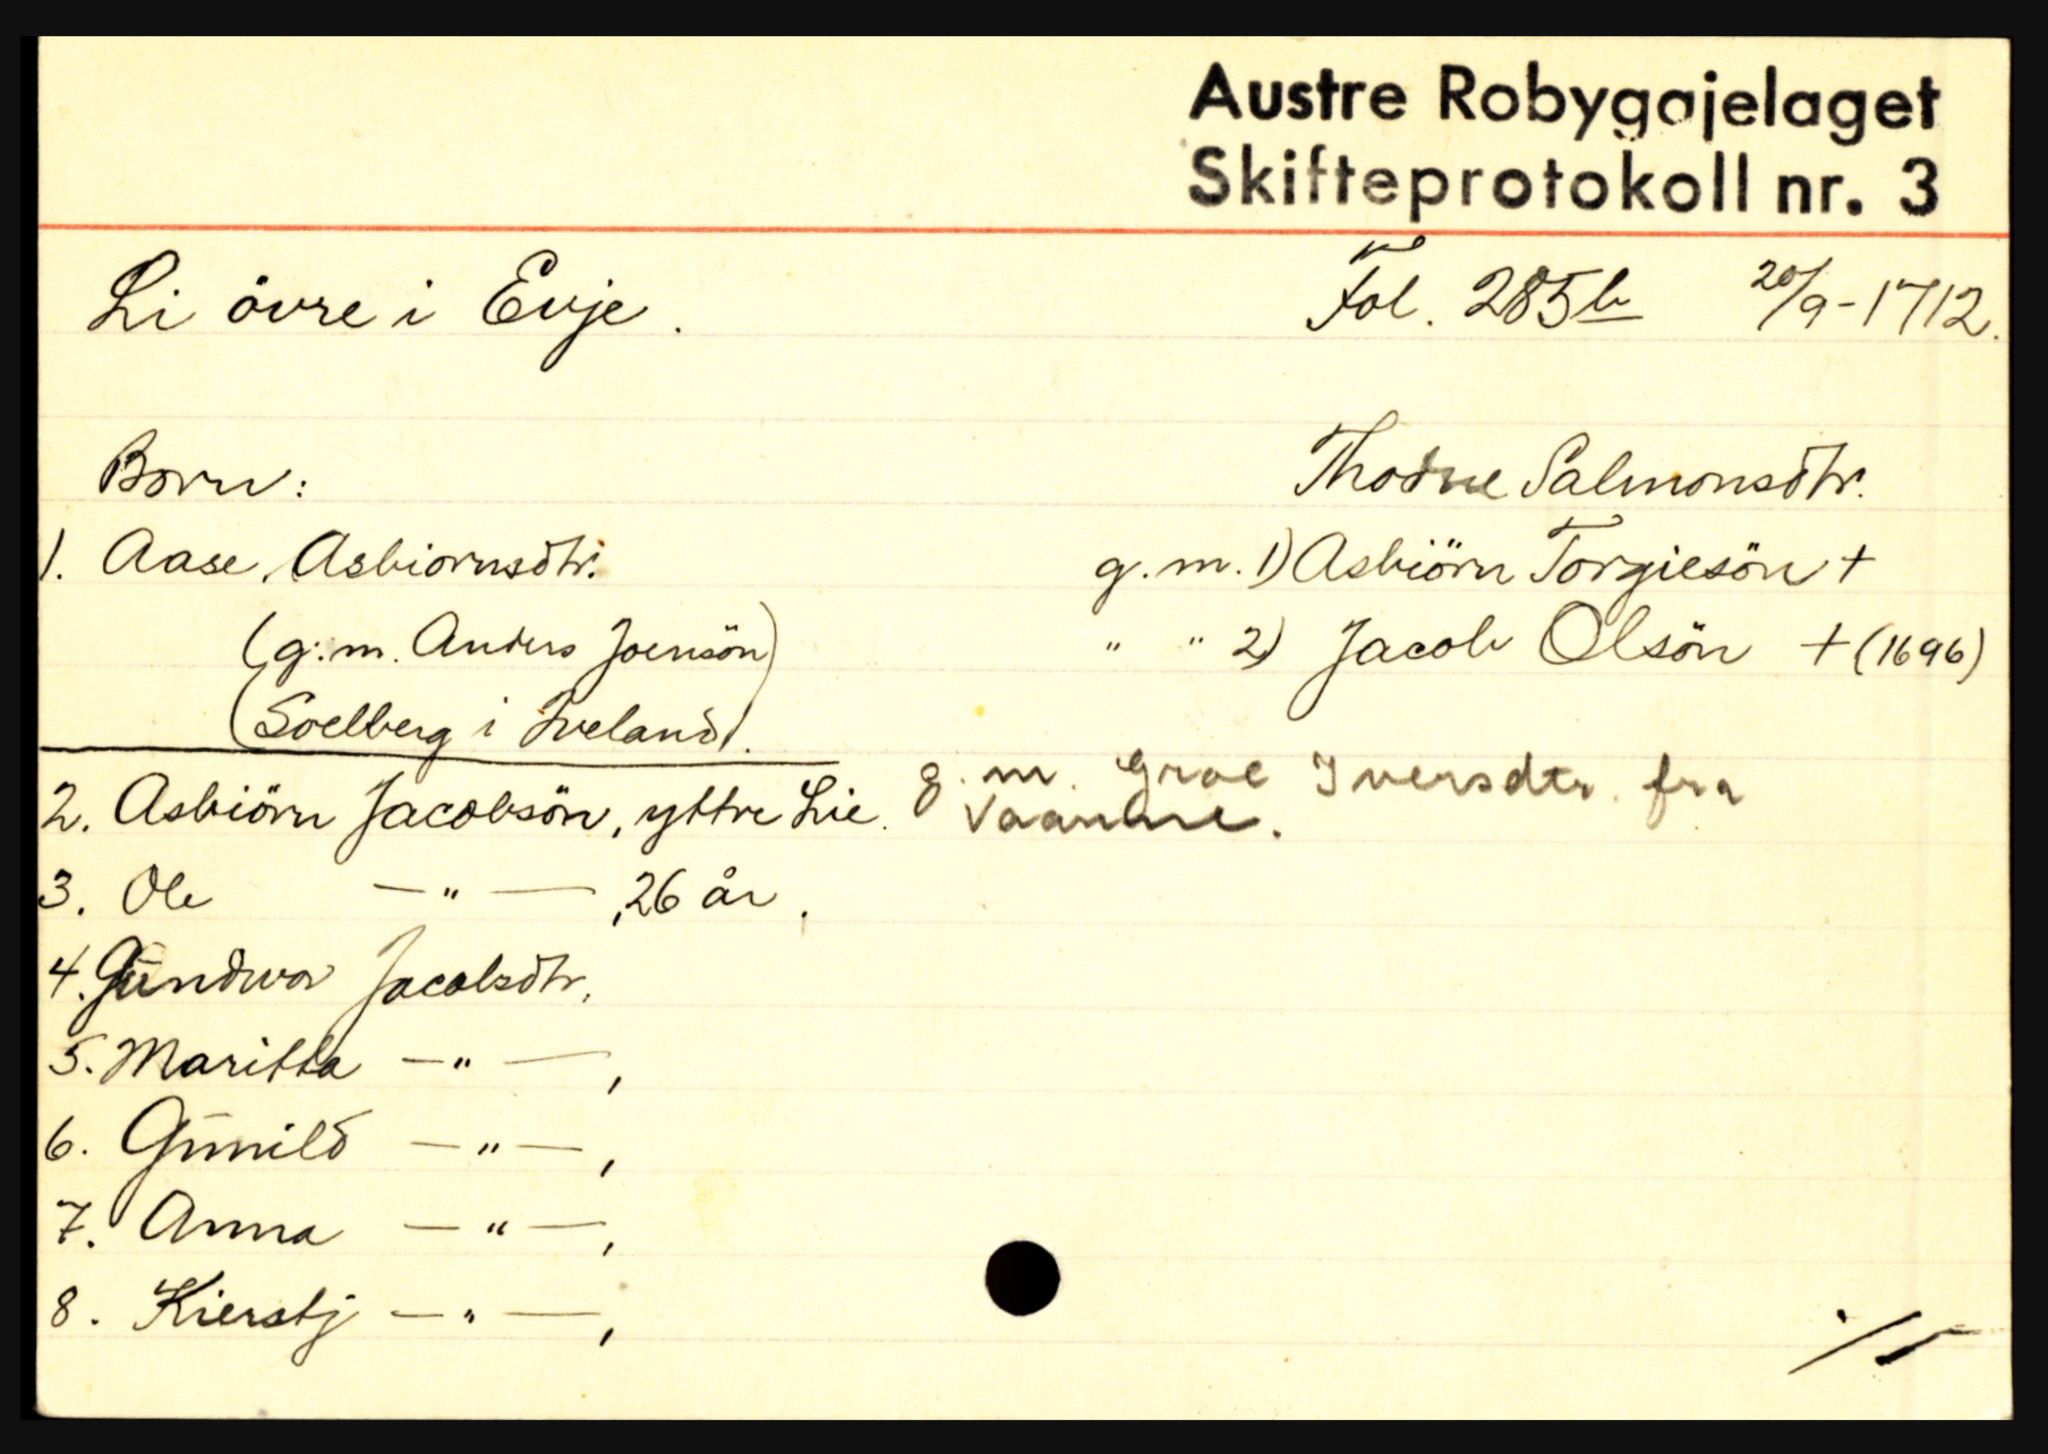 Austre Robygdjelaget
Skifteprotokoll nr. 3
Li övre i Evje. Fol. 285b 20/9-1712.
Born: Thodne Salmonsdtr.
1. Aase Asbiornsdtr. g.m. 1) Asbiörn Torgiesön +
(g.m. Anders Joensön) " " 2) Jacob Olsön + (1696)
(Soelberg i Iveland).
2. Asbiörn Jacobsön, yttre Lie. g.m. Groe Iversdtr. fra
Vaanne.
3. Ole —"— , 26 år.
4. Gündwor Jacobsdtr.
5. Maritta —"— ,
6. Günild —"— ,
7. Anna —"— ,
8. Kierstj —"— ,